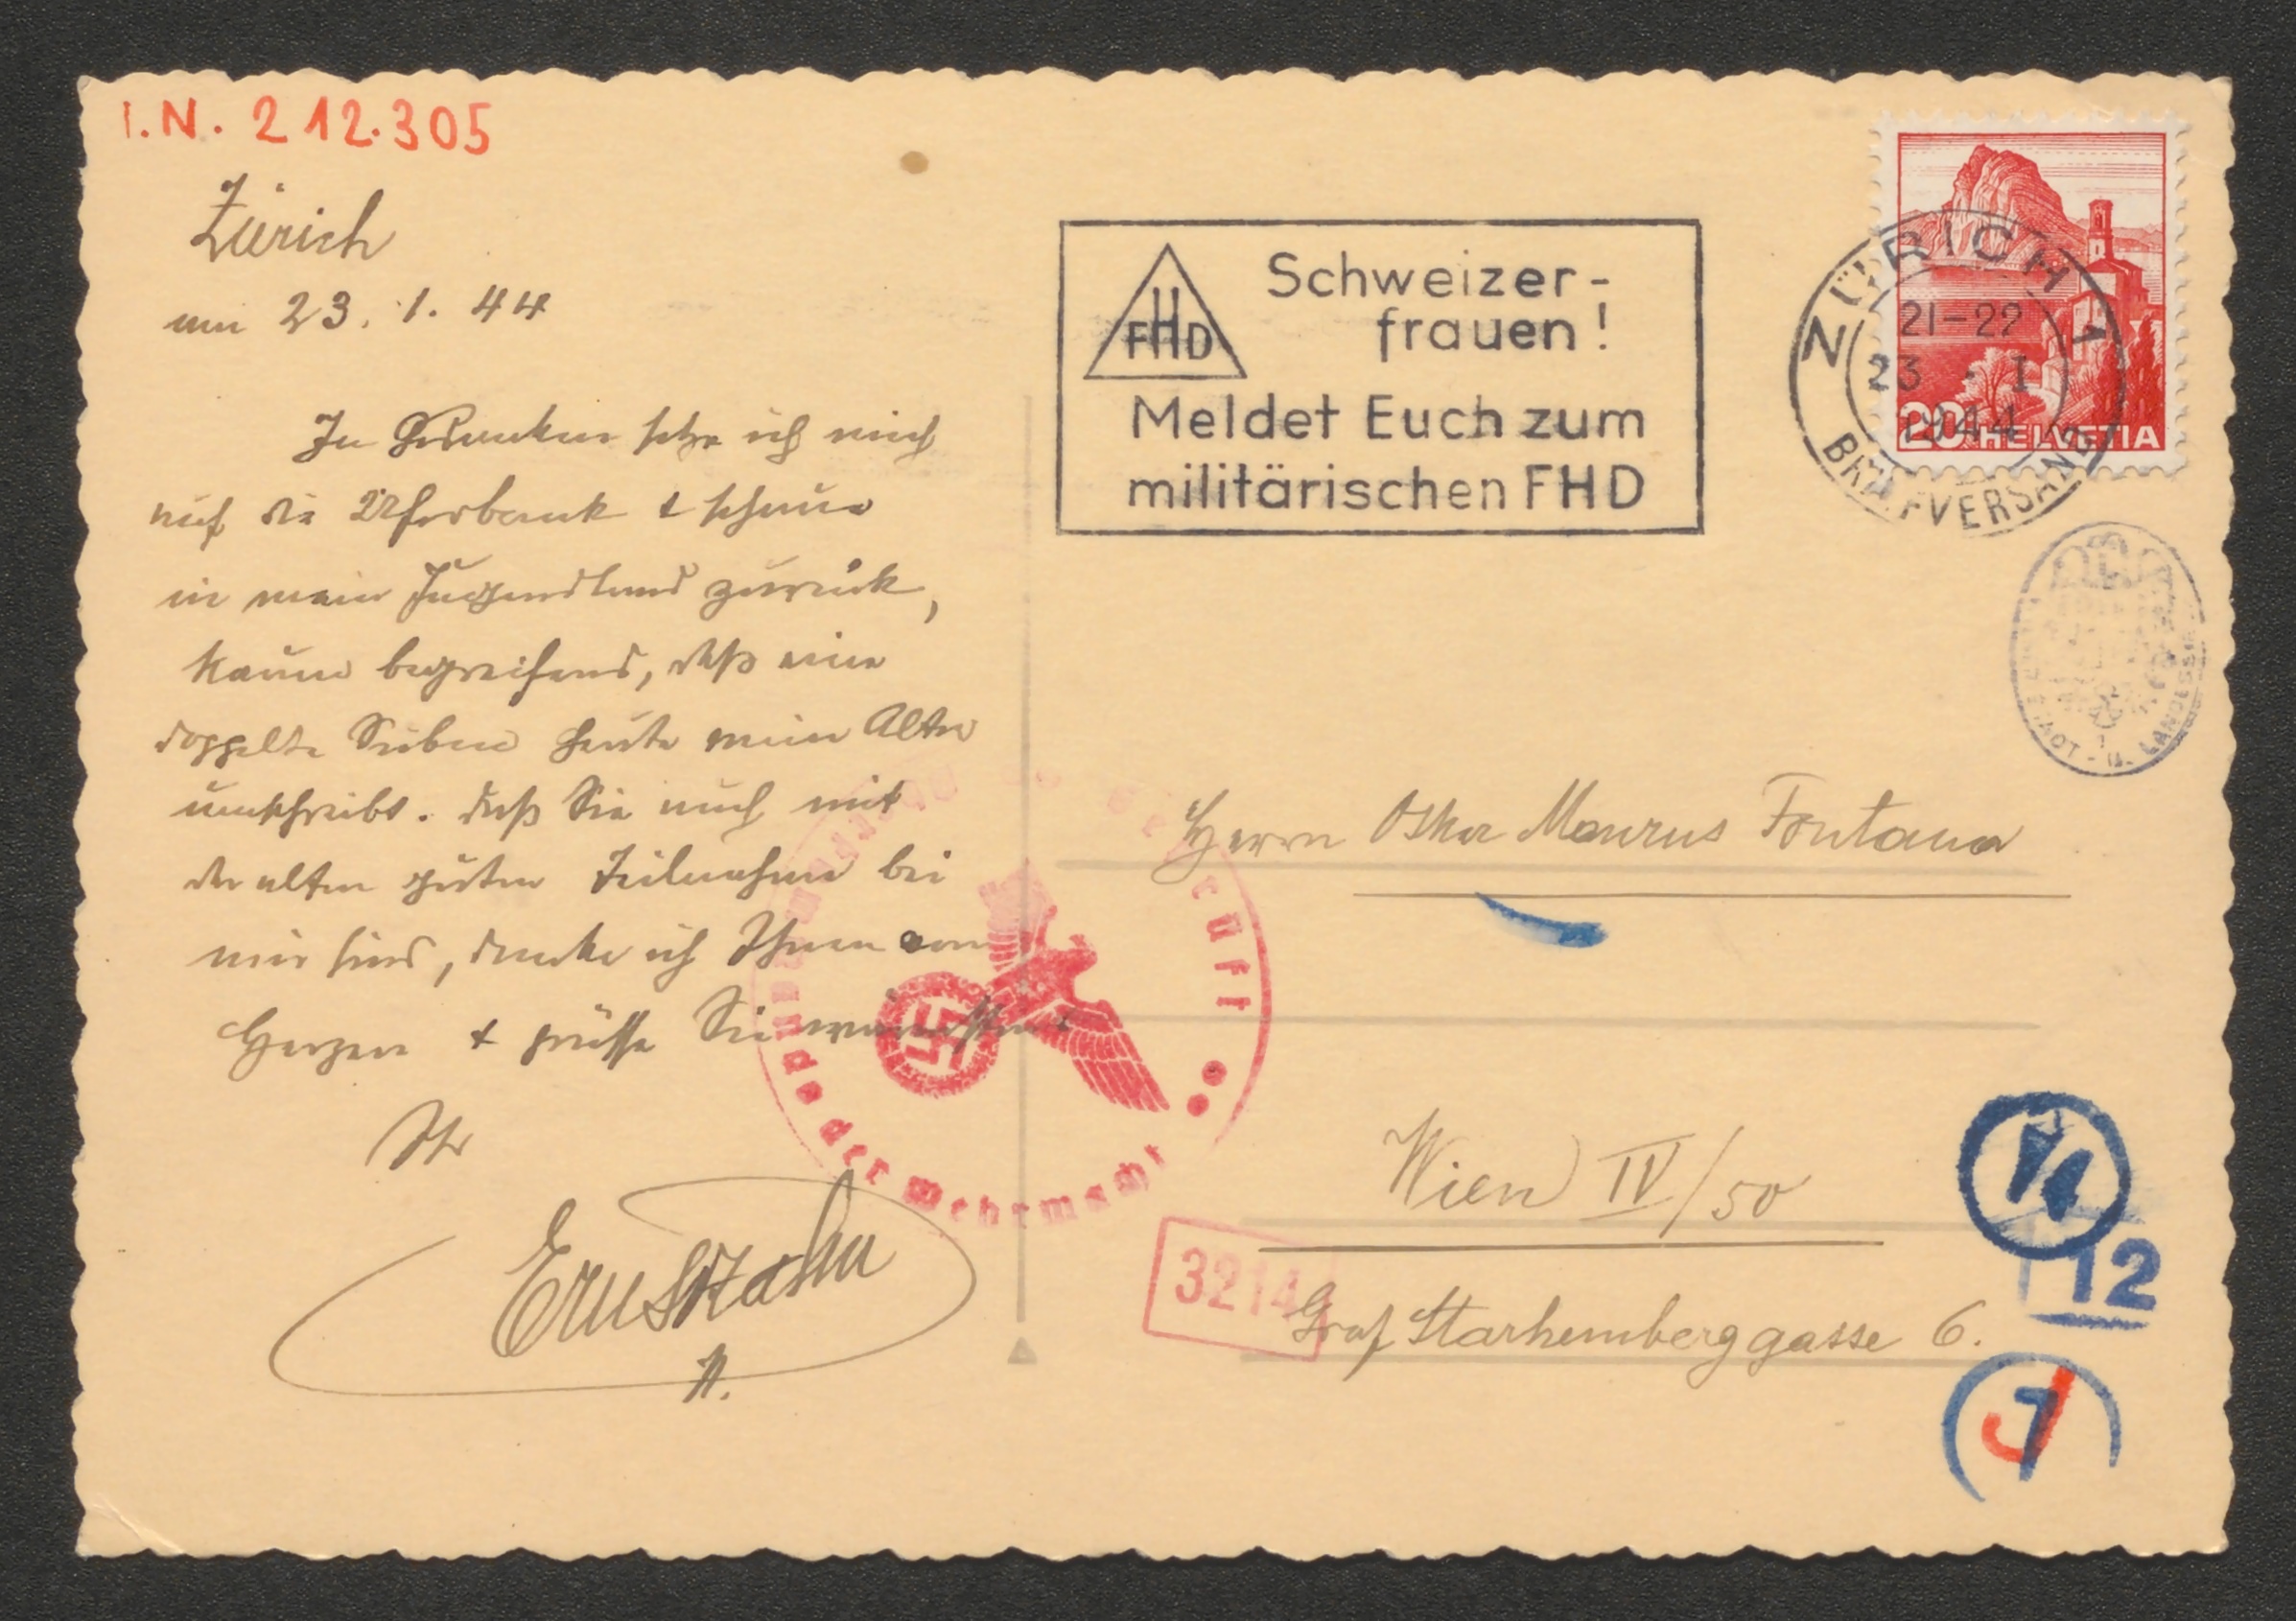 I.N. 212.305
Zürich
am 23. 1. 44
In Gedanken setze ich mich
auf die Uferbank & schaue
in mein Jugendland zurück,
kaum begreifend, daß eine
doppelte Sieben heute mein Alter
umschreibt. Daß Sie auch mit
der alten guten Teilnahme bei
mir sind, danke ich Ihnen von
Herzen & grüsse Sie wärmstens
Ihr
Ernst Zahn
FHD
Schweizer-
frauen!
Meldet Euch zum
militärischen FHD
ZÜRICH 1
21-22
23. I
1944
BRIEFVERSAND
20 HELVETIA
STADT- U. LANDES
Herrn Oskar Maurus Fontana
Wien IV/50
Graf Starhemberggasse 6.
geprüft
Oberkommando der Wehrmacht
3214
12